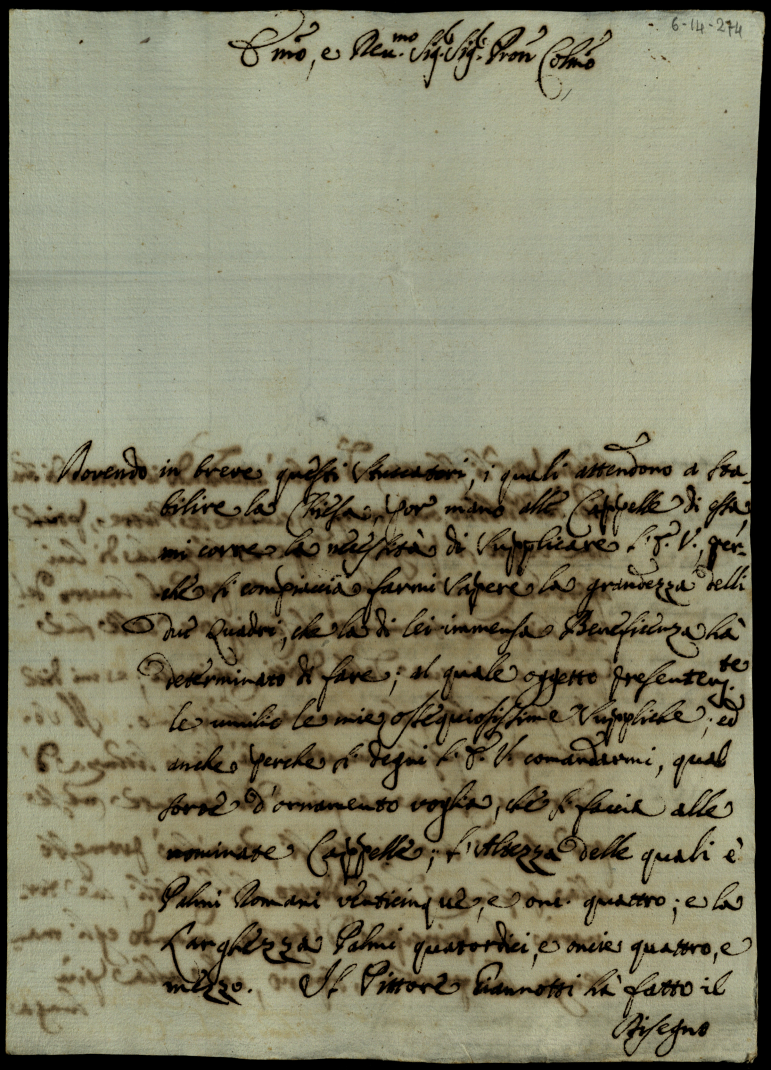 6-14-274
Emo, e Reu.mo Sig.r Sig.r Pron Colmo
Dovendo in breve questi Stuccatori, i quali attendono a sta-
bilire la Chiesa, por mano alle Cappelle di essa,
mi corre la necessità di supplicare l'E. V., per-
che si compiaccia farmi sapere la grandezza delli
due Quadri, che la di lei immensa Beneficenza hà
determinato di fare; al quale oggetto presentem.te
le umilio le mie ossequiosissime suppliche; ed
anche perche si degni l'E. V. comandarmi, qual
sorte d'ornamento voglia, che si faccia alle
nominate Cappelle; l'Altezza delle quali è
Palmi Romani venticinque, e onc. quattro; e la
Larghezza Palmi quatordici, e oncie quattro, e
mezzo. Il Pittore Giannotti hà fatto il
Disegno